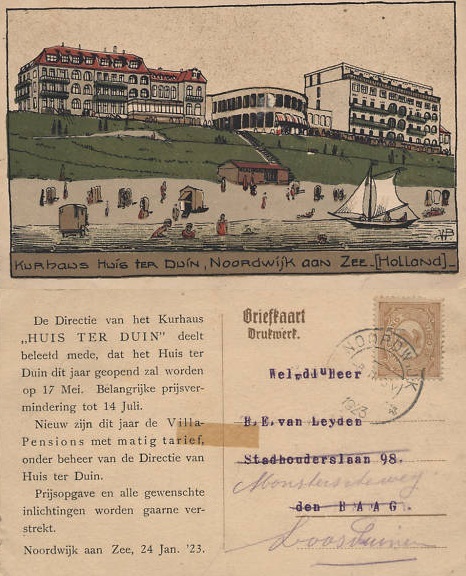 Kurhaus Huis ter Duin, Noordwijk aan Zee_[Holland]_
De Directie van het Kurhaus
„HUIS TER DUIN” deelt
beleefd mede, dat het Huis ter
Duin dit jaar geopend zal worden
op 17 Mei. Belangrijke prijsver-
mindering tot 14 Juli.
Nieuw zijn dit jaar de Villa-
Pensions met matig tarief,
onder beheer van de Directie van
Huis ter Duin.
Prijsopgave en alle gewenschte
inlichtingen worden gaarne ver-
strekt.
Noordwijk aan Zee, 24 Jan. '23.
Briefkaart
Drukwerk.
NOORDWIJK
1923
H.E.van Leyden
Stadhouderslaan 98.
Monsterscheweg
den HAAG.
Loosduinen